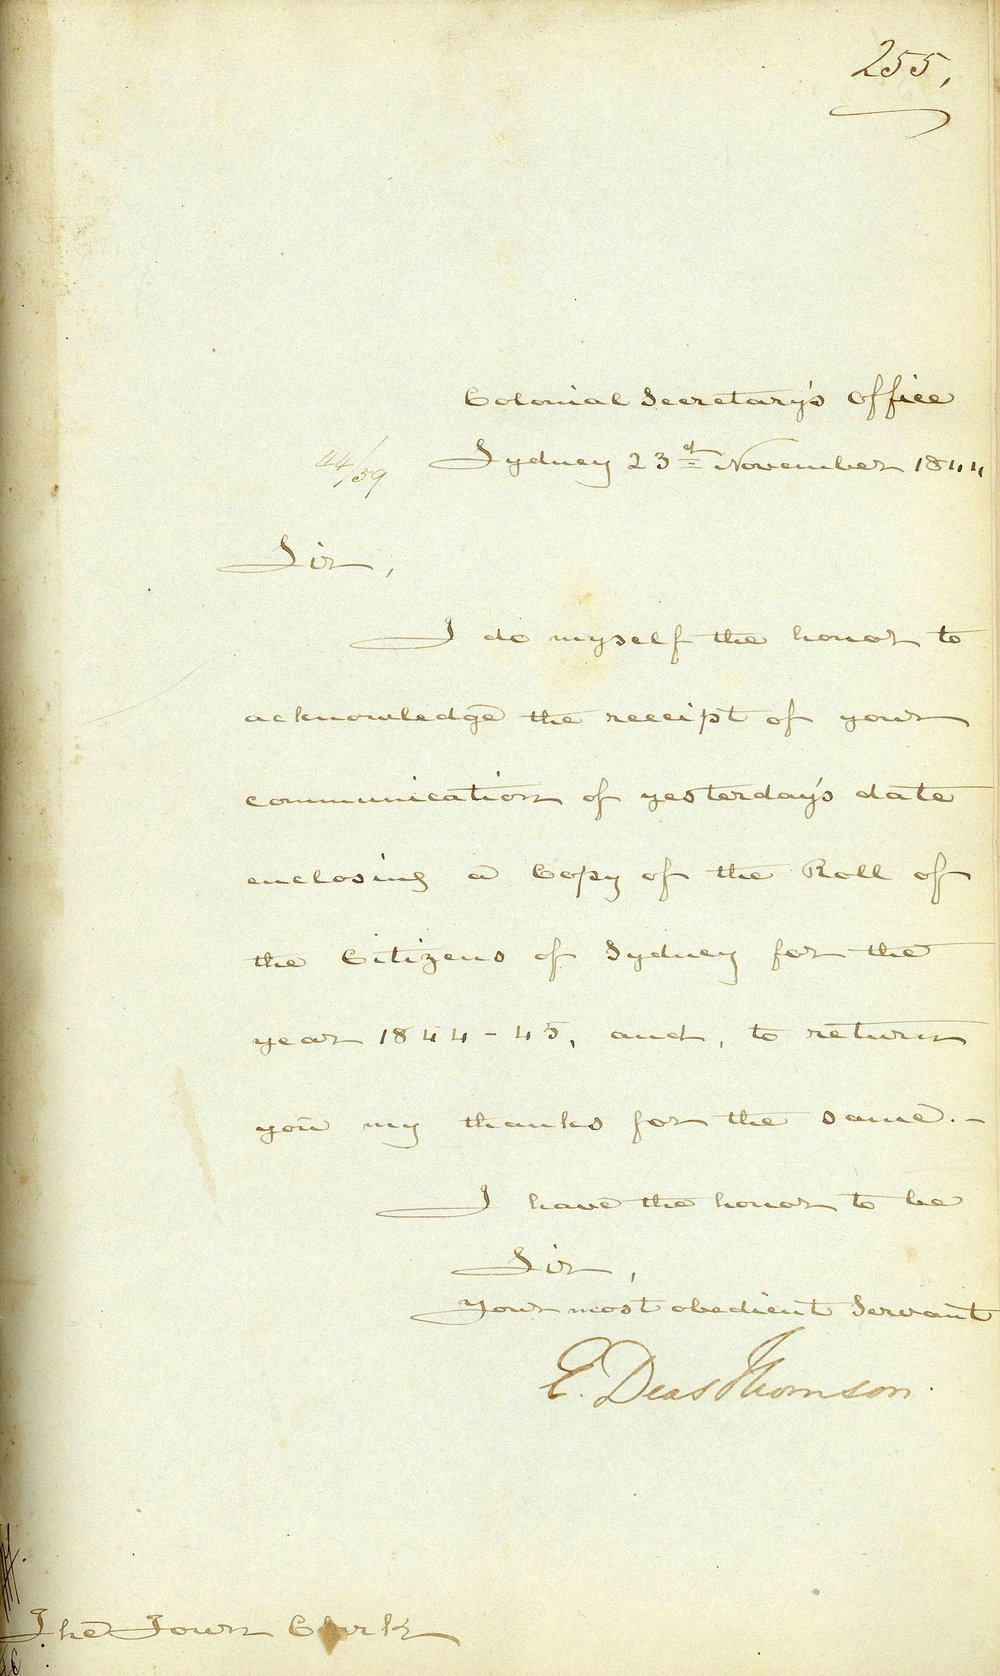 255.
Colonial Secretary's Office
44/59
Sydney 23rd November 1844
Sir,
I do myself the honor to
acknowledge the receipt of your
communication of yesterday's date
enclosing a Copy of the Roll of
the Citizens of Sydney for the
year 1844-45, and, to return
you my thanks for the same.-
I have the honor to be
Sir,
Your most obedient Servant
E. Deas Thomson.
The Town Clerk